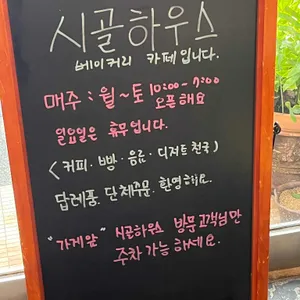 시골하우스
베이커리 카페입니다.
매주 : 월~토 10:00-7:00
오픈해요
일요일은 휴무입니다.
<커피. 빵. 음료. 디저트 천국>
답례품. 단체주문. 환영해요.
"가게앞" 시골하우스 방문고객님만
주차 가능하세요.